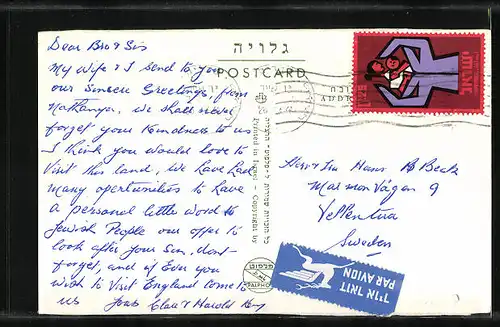 גלויה
POSTCARD
Dear Bro & Sis
My Wife & I send to you
our Sincere Greetings from
Nathanya, we shall never
forget your Kindness to us
I think you would love to
Visit this land, we have had
many opertunities to have
a personal little word to
Jewish People our offer to
look after your Son, dont
forget, and if Ever you
wish to Visit England come to
us Yours Clara & Harold
Printed in Israel - Copyright by
כל הזכויות שמורות
פלפוט
PALPHOT
Herr & Fru Hans Beck
Vägen 9
Vellentuna
Sweden
דואר אויר
PAR AVION